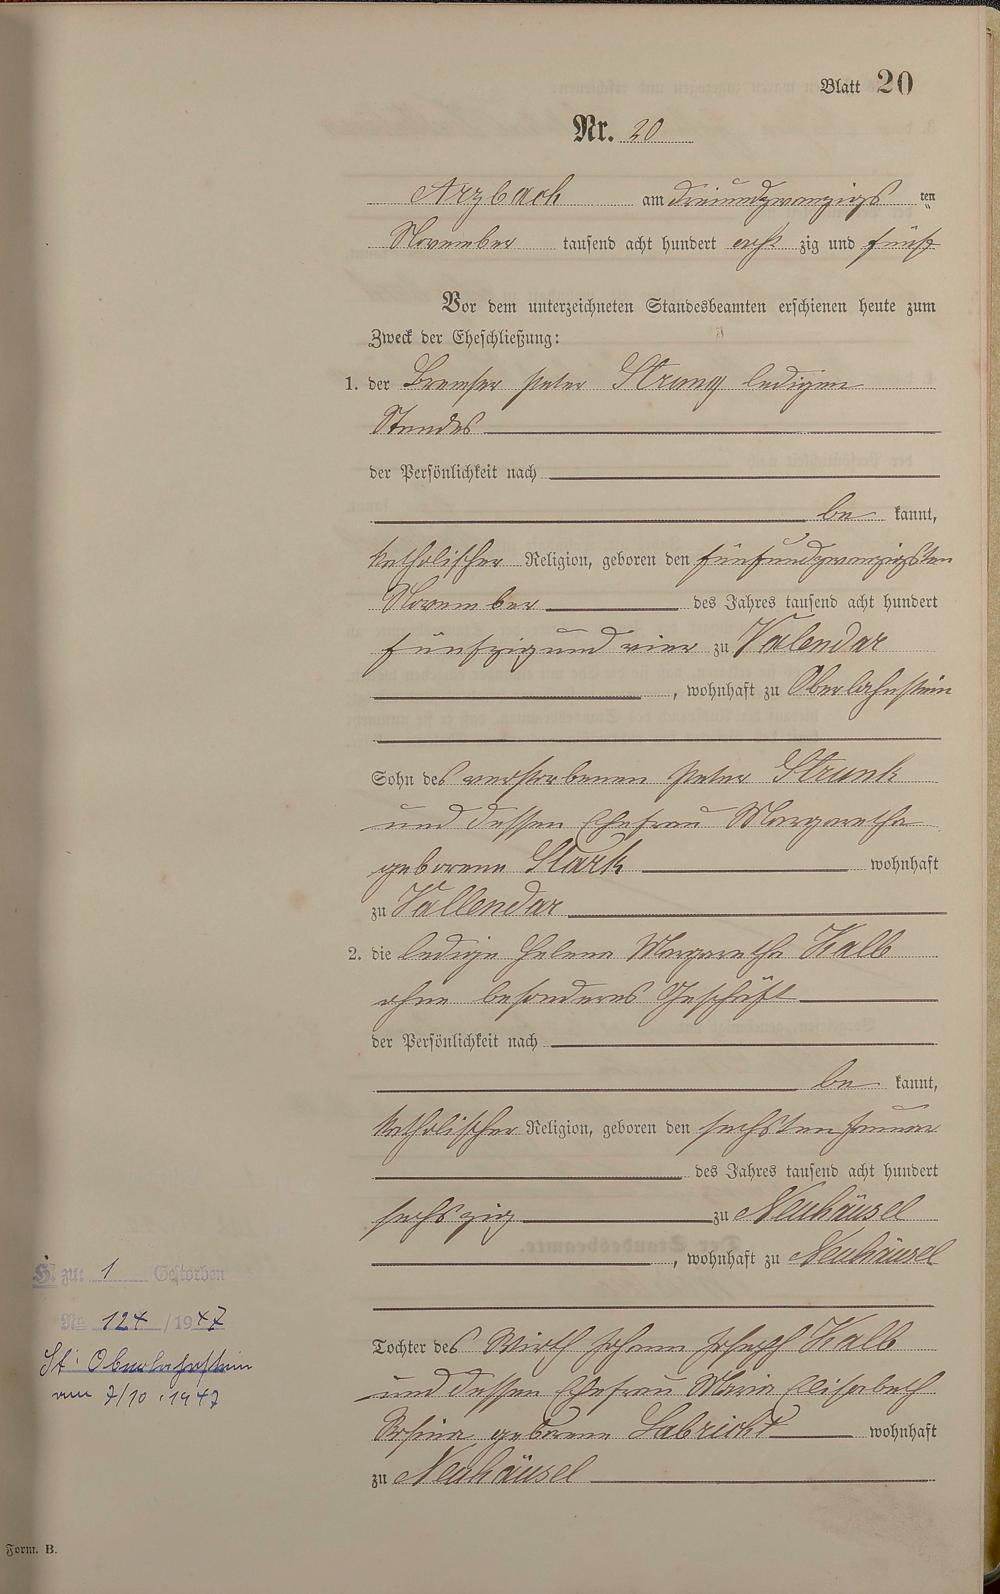 Blatt 20
Nr. 20
Arzbach am dreiundzwanzigs ten
November tausend acht hundert acht zig und fünf
Vor dem unterzeichneten Standesbeamten erschienen heute zum
Zweck der Eheschließung:
1. der Bremser Peter Strung ledigen
Standes
der Persönlichkeit nach
be kannt,
katholischer Religion, geboren den fünfundzwanzigsten
November des Jahres tausend acht hundert
fünfzig und vier zu Valendar
, wohnhaft zu Oberlahnstein
Sohn des verstorbenen Peter Strunk
und dessen Ehefrau Margaretha
geborene Stark wohnhaft
zu Vallendar
2. die ledige Helena Margaretha Kalb
ohne besonderes Geschäft
der Persönlichkeit nach
be kannt,
katholischer Religion, geboren den sechsten Januar
des Jahres tausend acht hundert
sechszig zu Neuhäusel
, wohnhaft zu Neuhäusel
Tochter des Wirth Johann Joseph Kalb
und dessen Ehefrau Maria Elisabeth
Rosina geborene Labricht wohnhaft
zu Neuhäusel
H. zu: 1 Gestorben
No 124 /1947
St: Oberlahnstein
am 7/10.1947
Form. B.